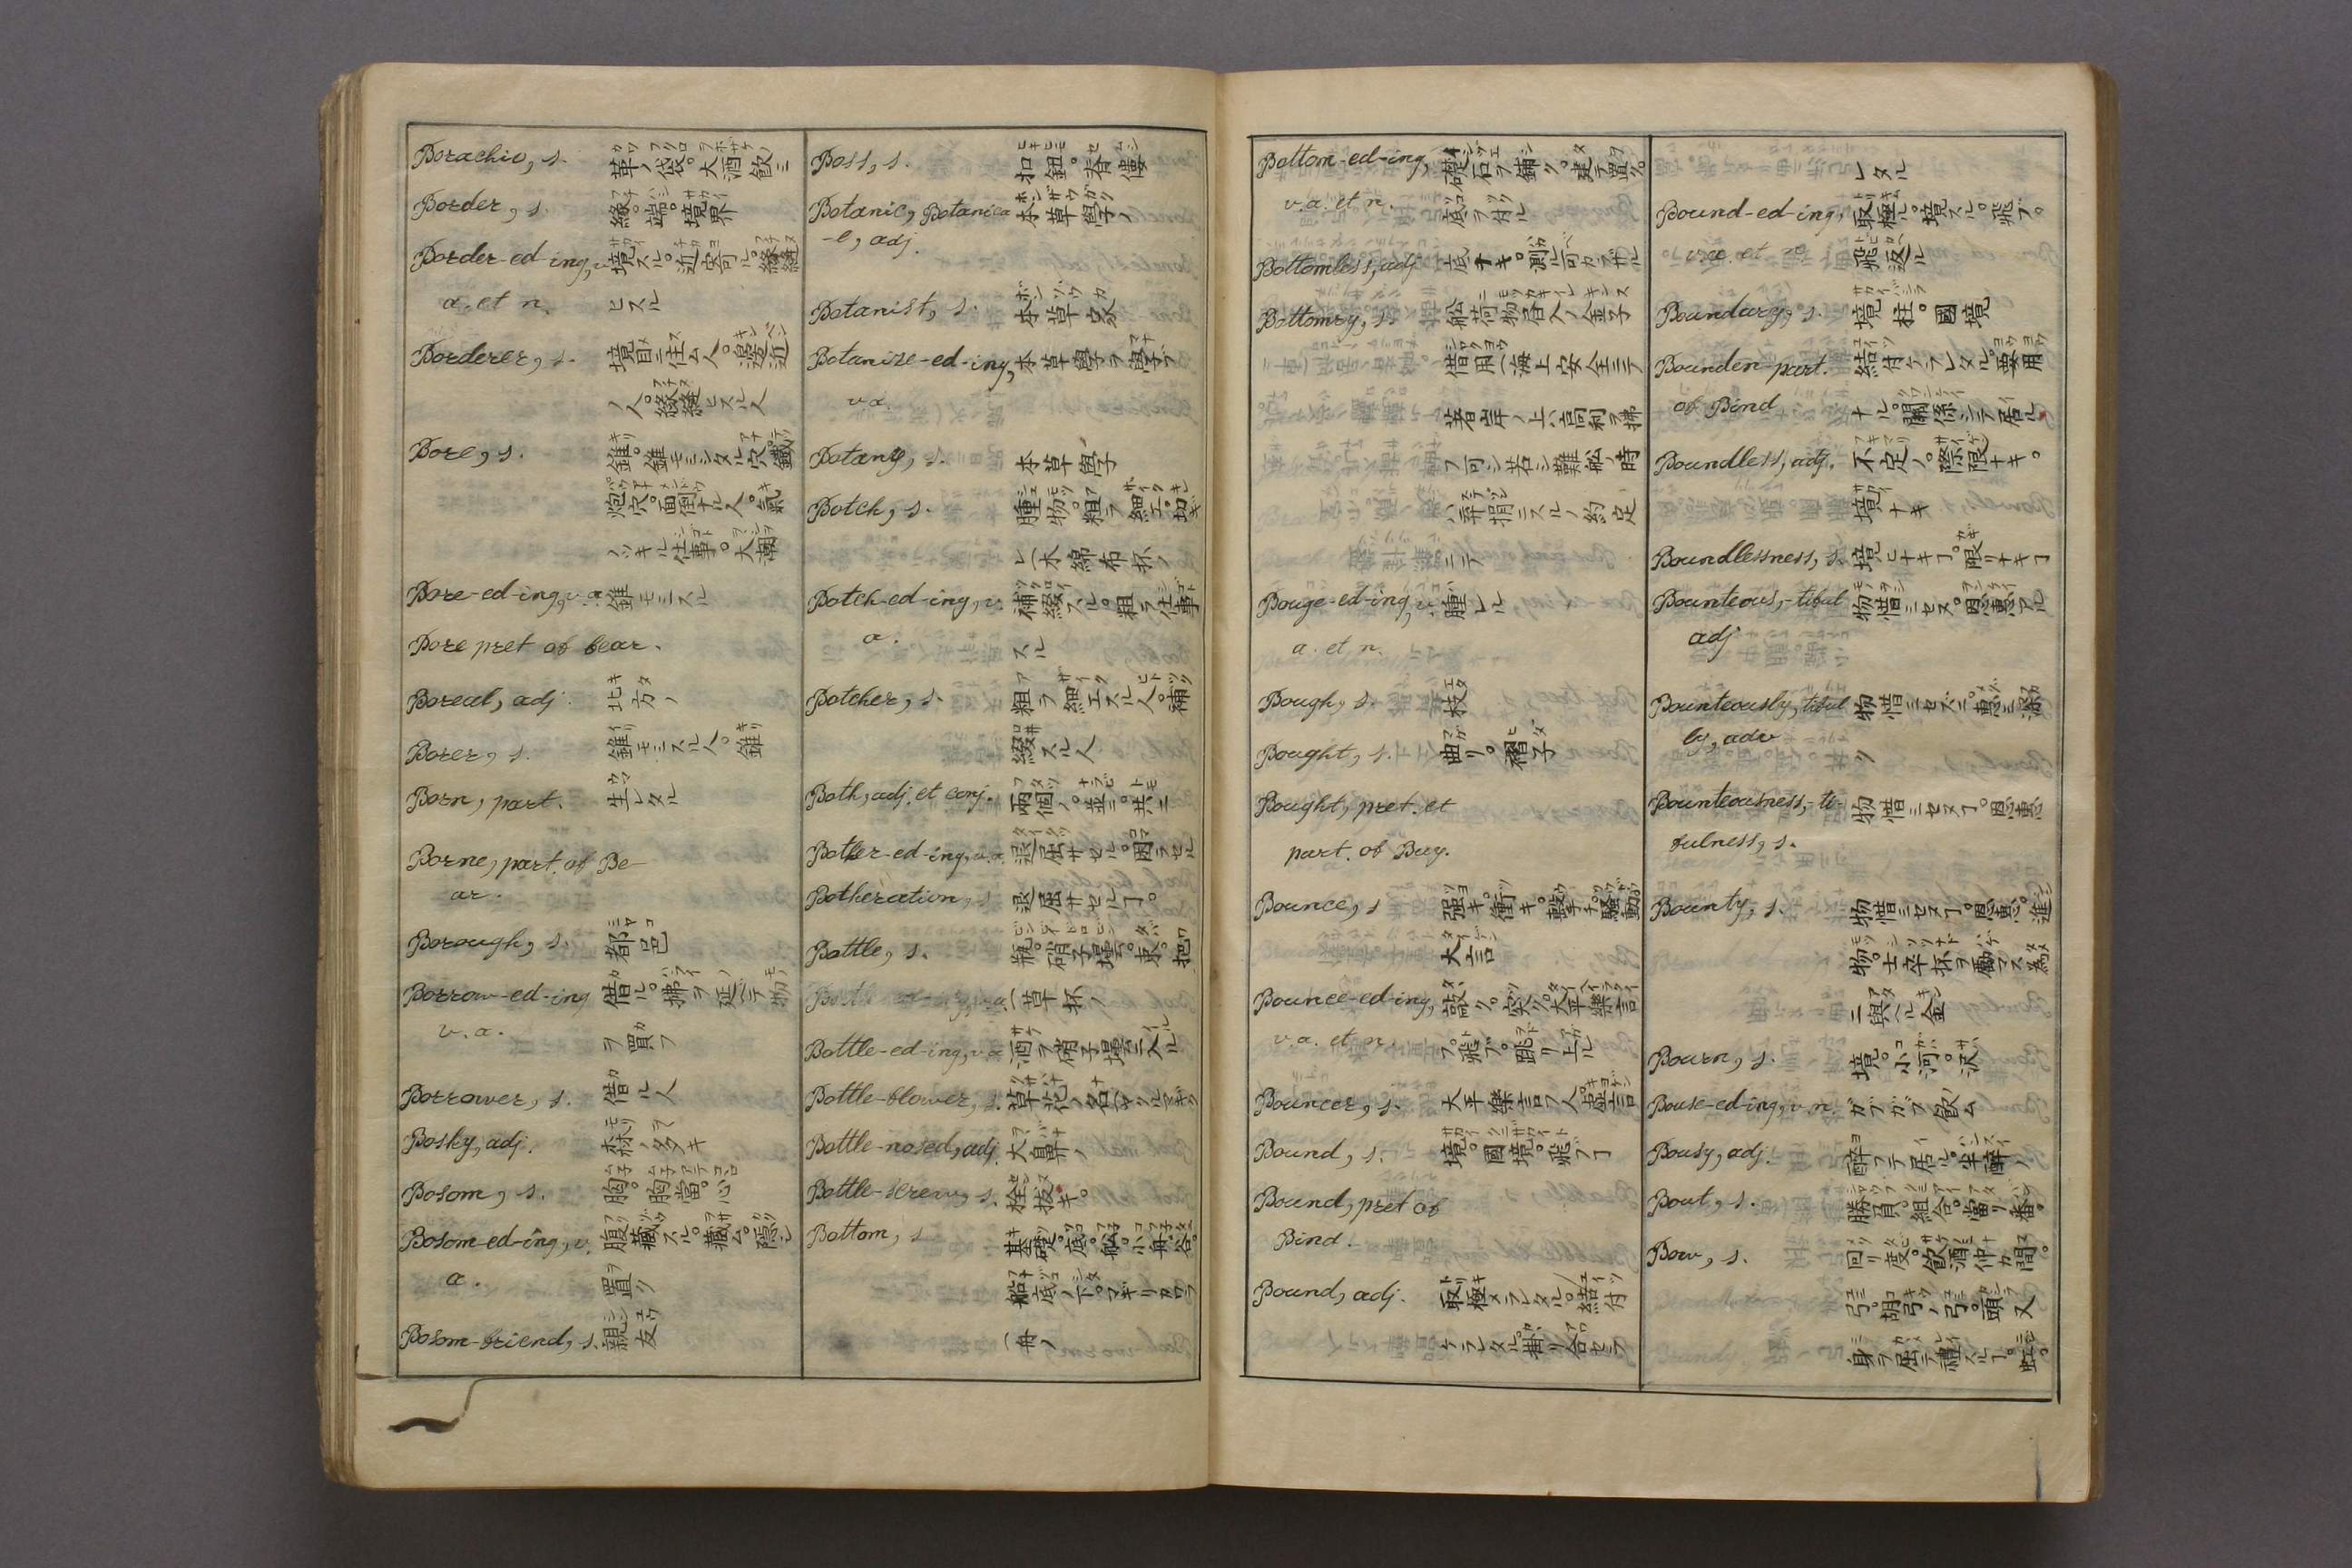 Borachio, s. 革ノ袋。大酒飲ミ
Border, s. 緣。端。境界
Border-ed-ing, v. 境スル。近寄ル。緣縫
a. et n. ヒスル
Borderer, s. 境目ニ住ム人。邊近
ノ人。緣縫ヒスル人
Bore, s. 錐。錐モミシタル穴。鑯
炮穴。面倒ナル人。氣
ノツキル仕事。大潮
Bore-ed-ing, v.a. 錐モミスル
Bore pret of bear.
Boreal, adj. 北方ノ
Borer, s. 錐モミスル人。錐
Born, part. 生レタル
Borne, part. of Be-
ar.
Borough, s. 都邑
Borrow-ed-ing 借ル。拂ヲ延シテ物
v.a. ヲ買フ
Borrower, s. 借ル人
Bosky, adj. 森ノ多キ
Bosom, s. 胸。胸當。心
Bosom-ed-ing, v. 腹藏スル。藏ム。隱シ
a. 置ク
Bosom-friend, s. 親友
Boss, s. 扣鈕。脊僂
Botanic, Botanica 本草學ノ
-l, adj.
Botanist, s. 本草家
Botanize-ed-ing, 本草學ヲ學ブ
v a.
Botany, s. 本草學
Botch, s. 腫物。粗ラ細工。切キ
レ(木綿布抔ノ
Botch-ed-ing, v. 補綴スル。粗ラ仕事
a. スル
Botcher, s. 粗ラ細工スル人。補
綴スル人
Both, adj. et conj. 兩個ノ。並ニ。共ニ
Bother-ed-ing, v.a. 退屈サセル。困ラセル
Botheration, s. 退屈サセルヿ。
Bottle, s. 瓶。硝子壜。束。把
(草抔ノ
Bottle-ed-ing, v.a. 酒ヲ硝子壜ニ入ル
Bottle-flower, s. 草花ノ名
Bottle-nosed, adj. 大鼻ノ
Bottle-screw, s. 栓拔キ。
Bottom, s. 基礎。底。船。小舟。谷。
船底ノ下。
(舟ノ
Bottom-ed-ing, 礎石ヲ鋪ク。建テ置ク。
v.a. et n. 底ヲ付ル
Bottomless, adj. 底ナキ。測ル可カラザル
Bottomry, s. 船荷物吞入ノ金子
借用(海上安全ニテ
著岸ノ上ハ高利ヲ拂
フ可シ若シ難船ノ時
ハ弃捐ニスルノ約定
ニテ
Bouge-ed-ing, v. 腫レル
a. et n.
Bough, s. 枝
Bought, s. 曲リ。褶子
Bought, pret. et
part. of Buy.
Bounce, s 强キ。衝キ。擊チ。騷動。
大言
Bounce-ed-ing, 敲ク。突ク。大平樂言
v.a. et n. フ。飛ブ。跳リ上ル
Bouncer, s. 大平樂言フ人。虛言
Bound, s. 境。國境。飛ブヿ
Bound, pret of
Bind.
Bound, adj. 取極メラレタル。結付
ケラレタル。掛リ合セラ
レタル
Bound-ed-ing, 取極ル。境スル。飛ブ。
v.a. et n. 飛返ル
Boundary, s. 境柱。國境
Bounden part. 結付ケラレタル。要用
of Bind ナル。關係シテ居ル
Boundless, adj. 不定ノ。際限ナキ。
境ナキ
Boundlessness, s. 境ヒナキヿ。限リナキヿ
Bounteous, -tiful 物惜ミセヌ。恩惠アル
adj
Bounteously, tiful 物惜ミセズニ。惠ミ深ク
ly, adv
Bounteousness, -ti- 物惜ミセヌヿ。恩惠
fulness, s.
Bounty, s. 物惜ミセヌヿ。恩惠。進
物。士卒抔ヲ勵マス為
ニ與ヘル金
Bourn, s. 境。小河。沢
Bouse-ed-ing, v.n. ガブガブ飲ム
Bousy, adj. 醉フテ居ル。半醉ノ
Bout, s. 勝負。組合。當リ番。
回リ度。飲酒仲カ間。
Bow, s. 弓。胡弓ノ弓。頭又
身ヲ屈テ禮スルヿ。虹。